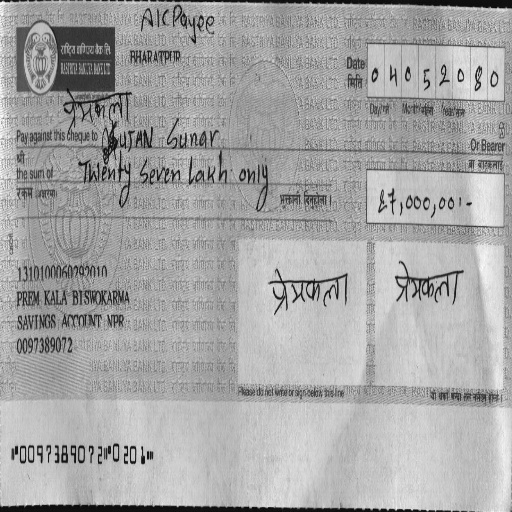 A/C Payee
राष्ट्रिय वाणिज्य बैंक लि.
RASTRIYA BANIJYA BANK LTD.
BHARATPUR
Date
मिति
0 4 0 5 2 0 8 0
Day/गते Month/महिना Year/साल
प्रेमकला
Pay against this cheque to SUJAN Sunar
Or Bearer
वा वाहकलाई
श्री
the sum of Twenty Seven Lakh only
रकम
27,000,00/-
1310100060292010
PREM KALA BISWOKARMA
SAVINGS ACCOUNT NPR
0097389072
प्रेमकला प्रेमकला
Please do not write or sign below this line
"0097389072"0201"